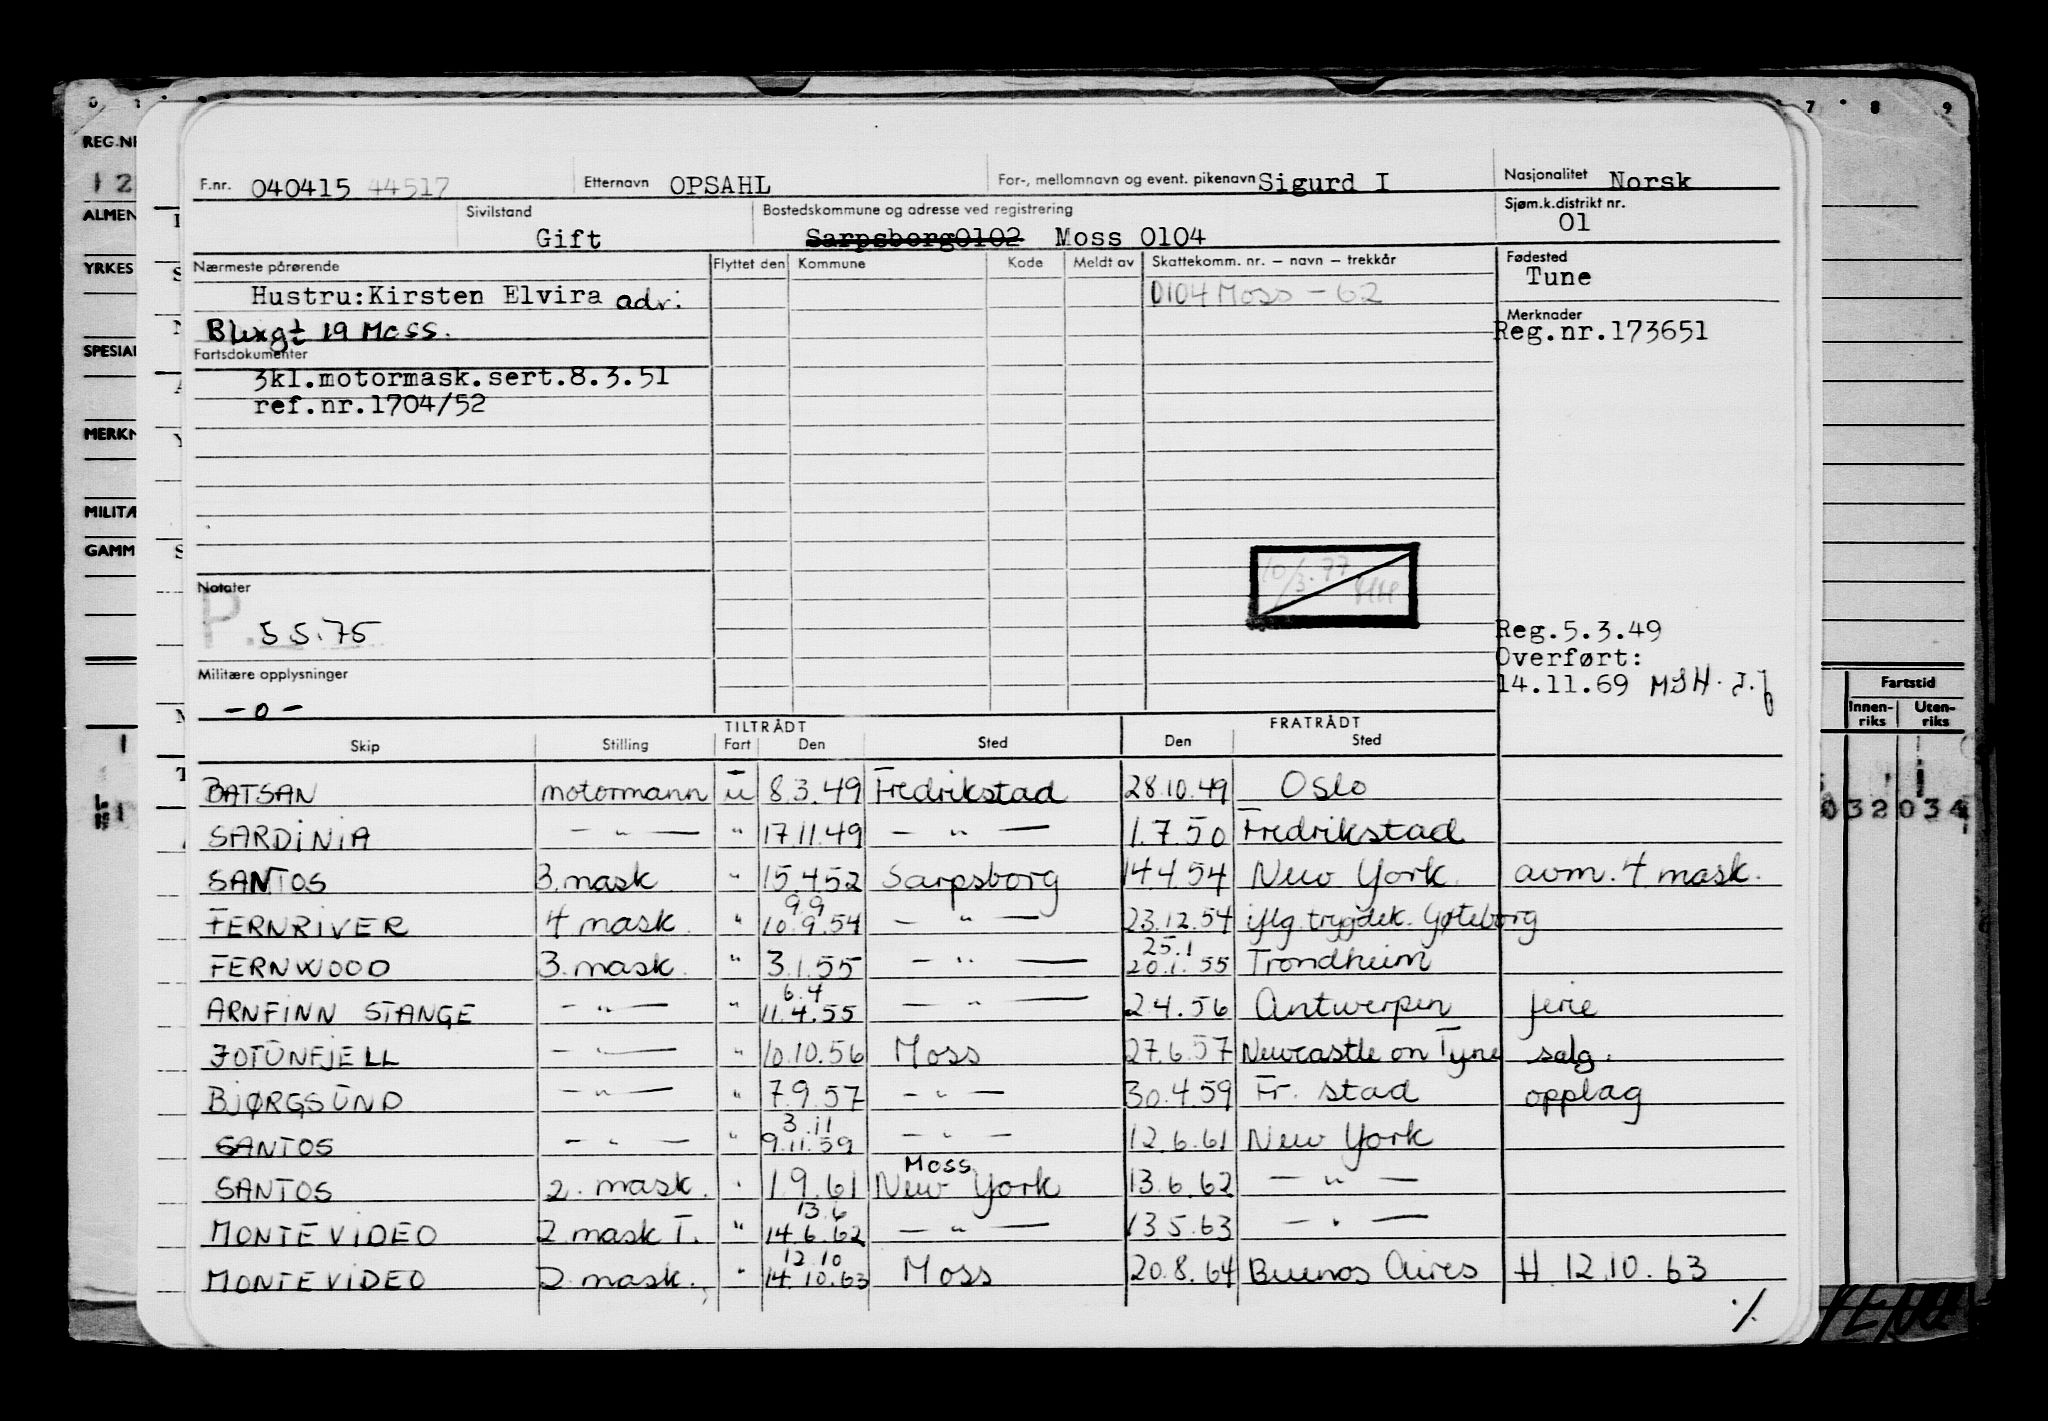 F.nr. 040415 44517 Etternavn OPSAHL For-, mellomnavn og event. pikenavn Sigurd I Nasjonalitet Norsk
Sivilstand Gift Bostedskommune og adresse ved registrering Sarpsborg0102 Moss 0104 Sjøm.k.distrikt nr. 01
Nærmeste pårørende Flyttet den Kommune Kode Meldt av Skattekomm. nr. – navn – trekkår Fødested
Hustru:Kirsten Elvira adr: 0104 Moss - 62 Tune
19 Moss. Merknader
Reg.nr.173651
Fartsdokumenter
3kl.motormask.sert.8.3.51
ref.nr.1704/52
10/3.77
Notater
P. 5 5.75
Reg.5.3.49
Overført:
14.11.69
Militære opplysninger
- o -
TILTRÅDT FRATRÅDT
Skip Stilling Fart Den Sted Den Sted
BATSAN motormann u 8.3.49 Fredrikstad 28.10.49 Oslo
SARDINIA — " — " 17.11.49 — " — 1.7.50 Fredrikstad
SANTOS 3.mask " 15.4.52 Sarpsborg 14.4.54 New York avm. 4 mask.
9.9
FERNRIVER 4 mask. " 10.9.54 — " — 23.12.54 iflg. trygdek. Gøteborg
25.1
FERNWOOD 3.mask. " 3.1.55 — " — 20.1.55 Trondheim
6.4
ARNFINN STANGE — " — " 11.4.55 — " — 2.4.56 Antwerpen ferie
JOTUNFJELL — " — " 10.10.56 Moss 27.6.57 Newcastle on Tyne salg.
BJØRGSUND — " — " 7.9.57 — " — 30.4.59 Fr. stad opplag
3.11
SANTOS — " — " 9.11.59 — " — 12.6.61 New York
Moss
SANTOS 2. mask. " 1.9.61 New York 13.6.62 — " —
13.6
MONTEVIDEO 2.mask T. " 14.6.62 — " — 13.5.63 — " —
12.10
MONTEVIDEO 2.mask. " 14.10.63 Moss 20.8.64 Buenos Aires H 12.10.63
./.
REG.NR
12
ALMEN
YRKES
SPESIAL
MERKN
MILITÆ
GAMM
7 8 9
Fartstid
Innen-riks Uten-riks
032 034